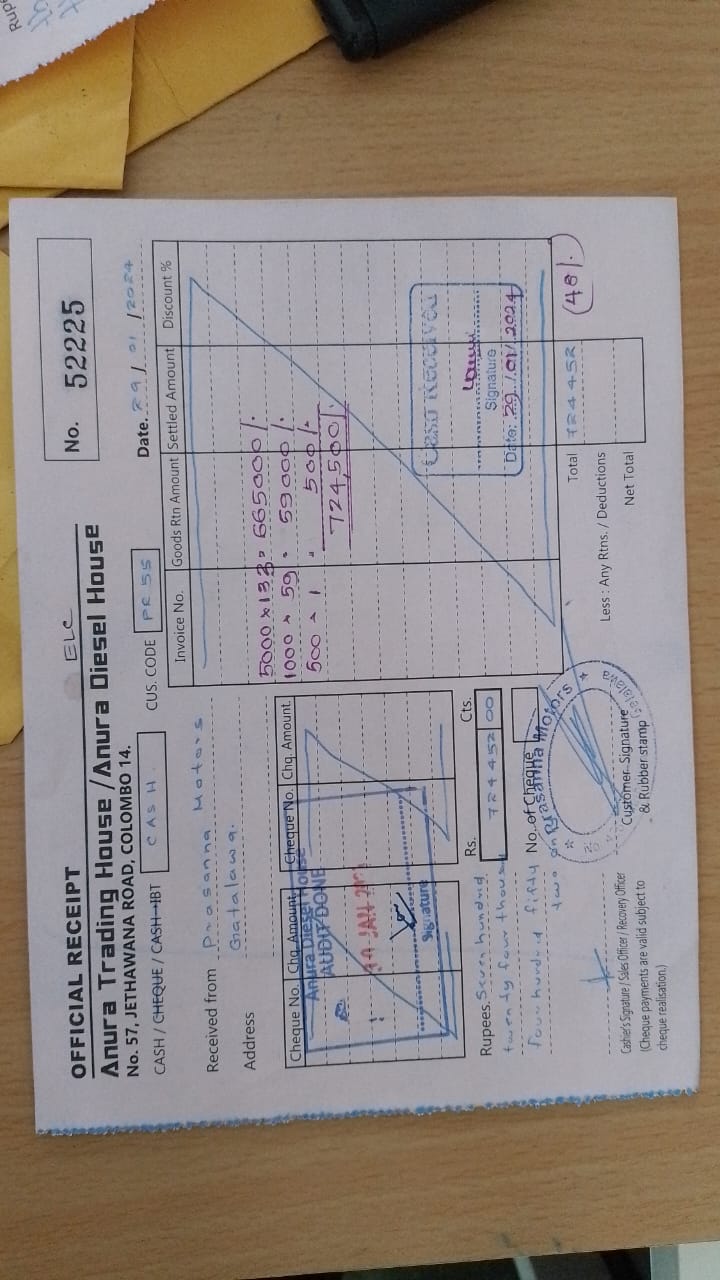 OFFICIAL RECEIPT
ELC
No. 52225
Anura Trading House / Anura Diesel House
No. 57, JETHAWANA ROAD, COLOMBO 14.
Date. 29 / 01 / 2024
CASH / CHEQUE / CASH - IBT CASH. CUS. CODE PR 55
Received from Prasanna Motors
Address Galalawa.
Cheque No. Chq. Amount Cheque No. Chq. Amount
Invoice No. Goods Rtn Amount Settled Amount Discount %
5000 x 133 = 665000/.
1000 x 59 = 59000/.
500 x 1 = 500/.
724,500/.
Anura Diesel House
AUDIT DONE
Signature
Cash Received
Signature
Date: 29/01/2024
Rs. Cts.
724452 00
Rupees. Seven hundred
twenty four thousand
four hundred fifty
two only
No. of Cheque
Total 724452
(48/.)
Less : Any Rtns. / Deductions
Net Total
Prasanna Motors
Cashier's Signature / Sales Officer / Recovery Officer
(Cheque payments are valid subject to
cheque realisation.)
Customer Signature
& Rubber stamp